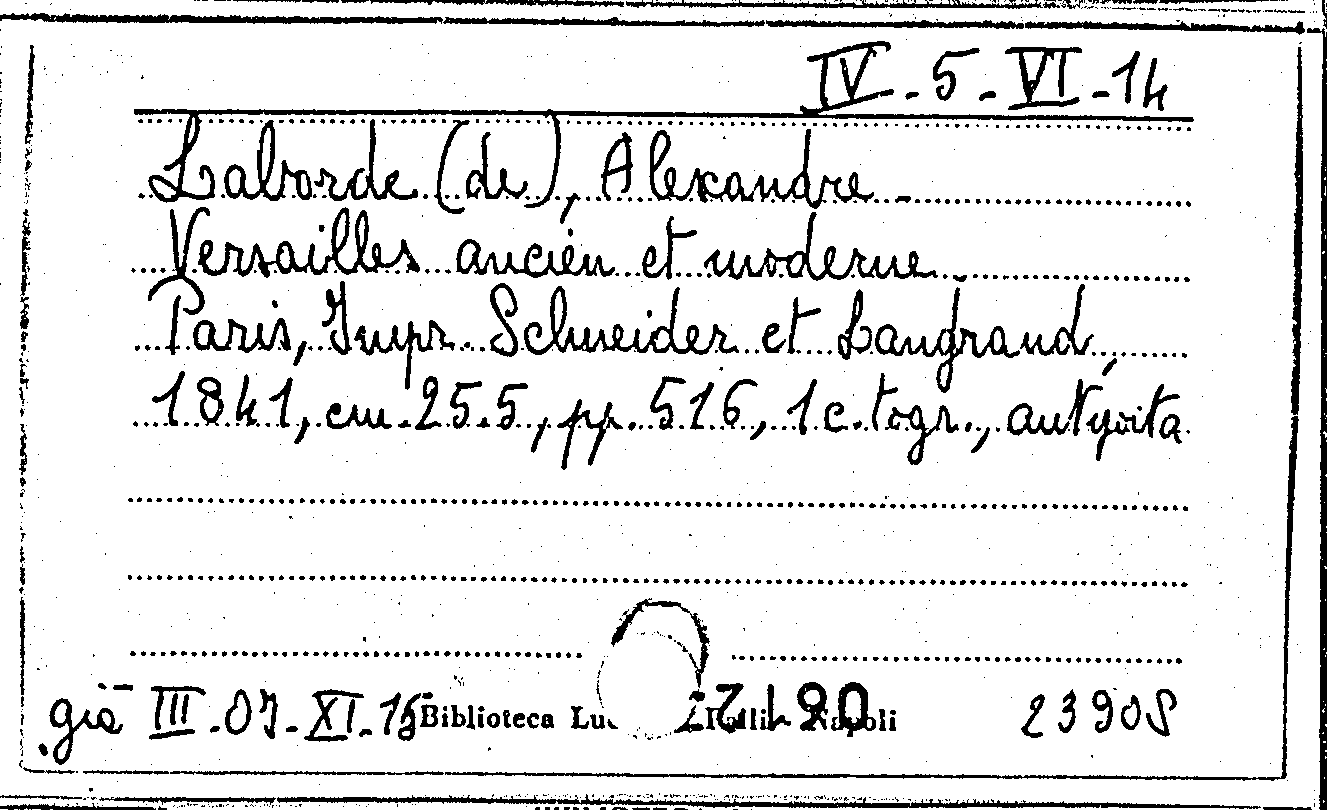 IV-5-VI-14
Laborde (de), Alexandre -
Versailles ancien et moderne -
Paris, Impr. Schneider et Langrand,
1841, cm. 25.5, pp. 516, 1 c. togr.,
già III-07-XI-15 Biblioteca Napoli 23908